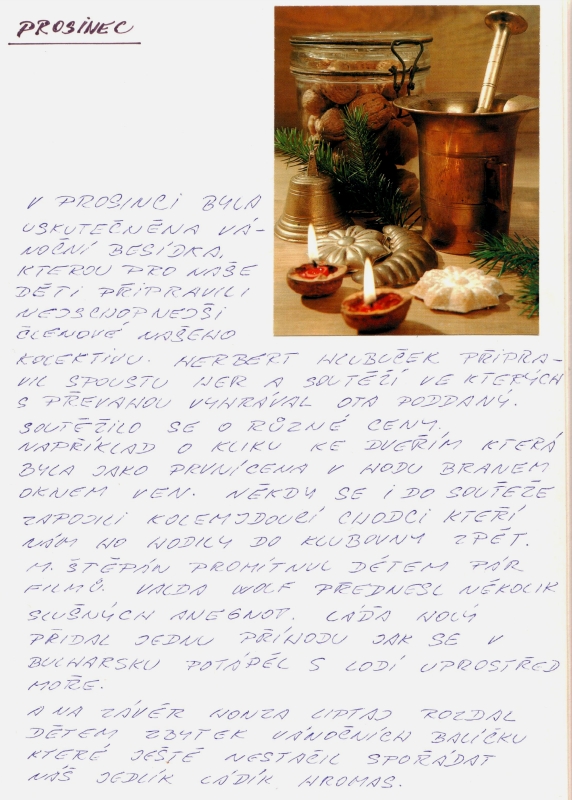 PROSINEC
V PROSINCI BYLA
USKUTEČNĚNA VÁ-
NOČNÍ BESÍDKA,
KTEROU PRO NAŠE
DĚTI PŘIPRAVILI
NEJSCHOPNEJŠÍ
ČLENOVÉ NAŠEHO
KOLEKTIVU. HERBERT HLUBUČEK PŘIPRA-
VIL SPOUSTU HER A SOUTĚŽÍ VE KTERÝCH
S PŘEVAHOU VYHRÁVAL OTA PODDANÝ.
SOUTĚŽILO SE O RŮZNÉ CENY.
NAPŘÍKLAD O KLIKU KE DVEŘÍM KTERÁ
BYLA JAKO PRVNÍ CENA V HODU BRANEM
OKNEM VEN. NĚKDY SE I DO SOUTĚŽE
ZAPOJILI KOLEMJDOUCÍ CHODCI KTEŘÍ
NÁM HO HODILY DO KLUBOVNY ZPĚT.
M. ŠTĚPÁN PROMÍTNUL DĚTEM PÁR
FILMŮ. VALDA WOLF PŘEDNESL NĚKOLIK
SLUŠNÝCH ANEGNOT. LÁĎA HOLÝ
PŘIDAL JEDNU PŘÍHODU JAK SE V
BULHARSKU POTÁPĚL S LODÍ UPROSTŘED
MOŘE.
A NA ZÁVĚR HONZA LIPTAJ ROZDAL
DĚTEM ZBYTEK VÁNOČNÍCH BALÍČKU
KTERÉ JEŠTĚ NESTAČIL SPOŘÁDAT
NÁŠ JEDLÍK LÁDÍK HROMAS.